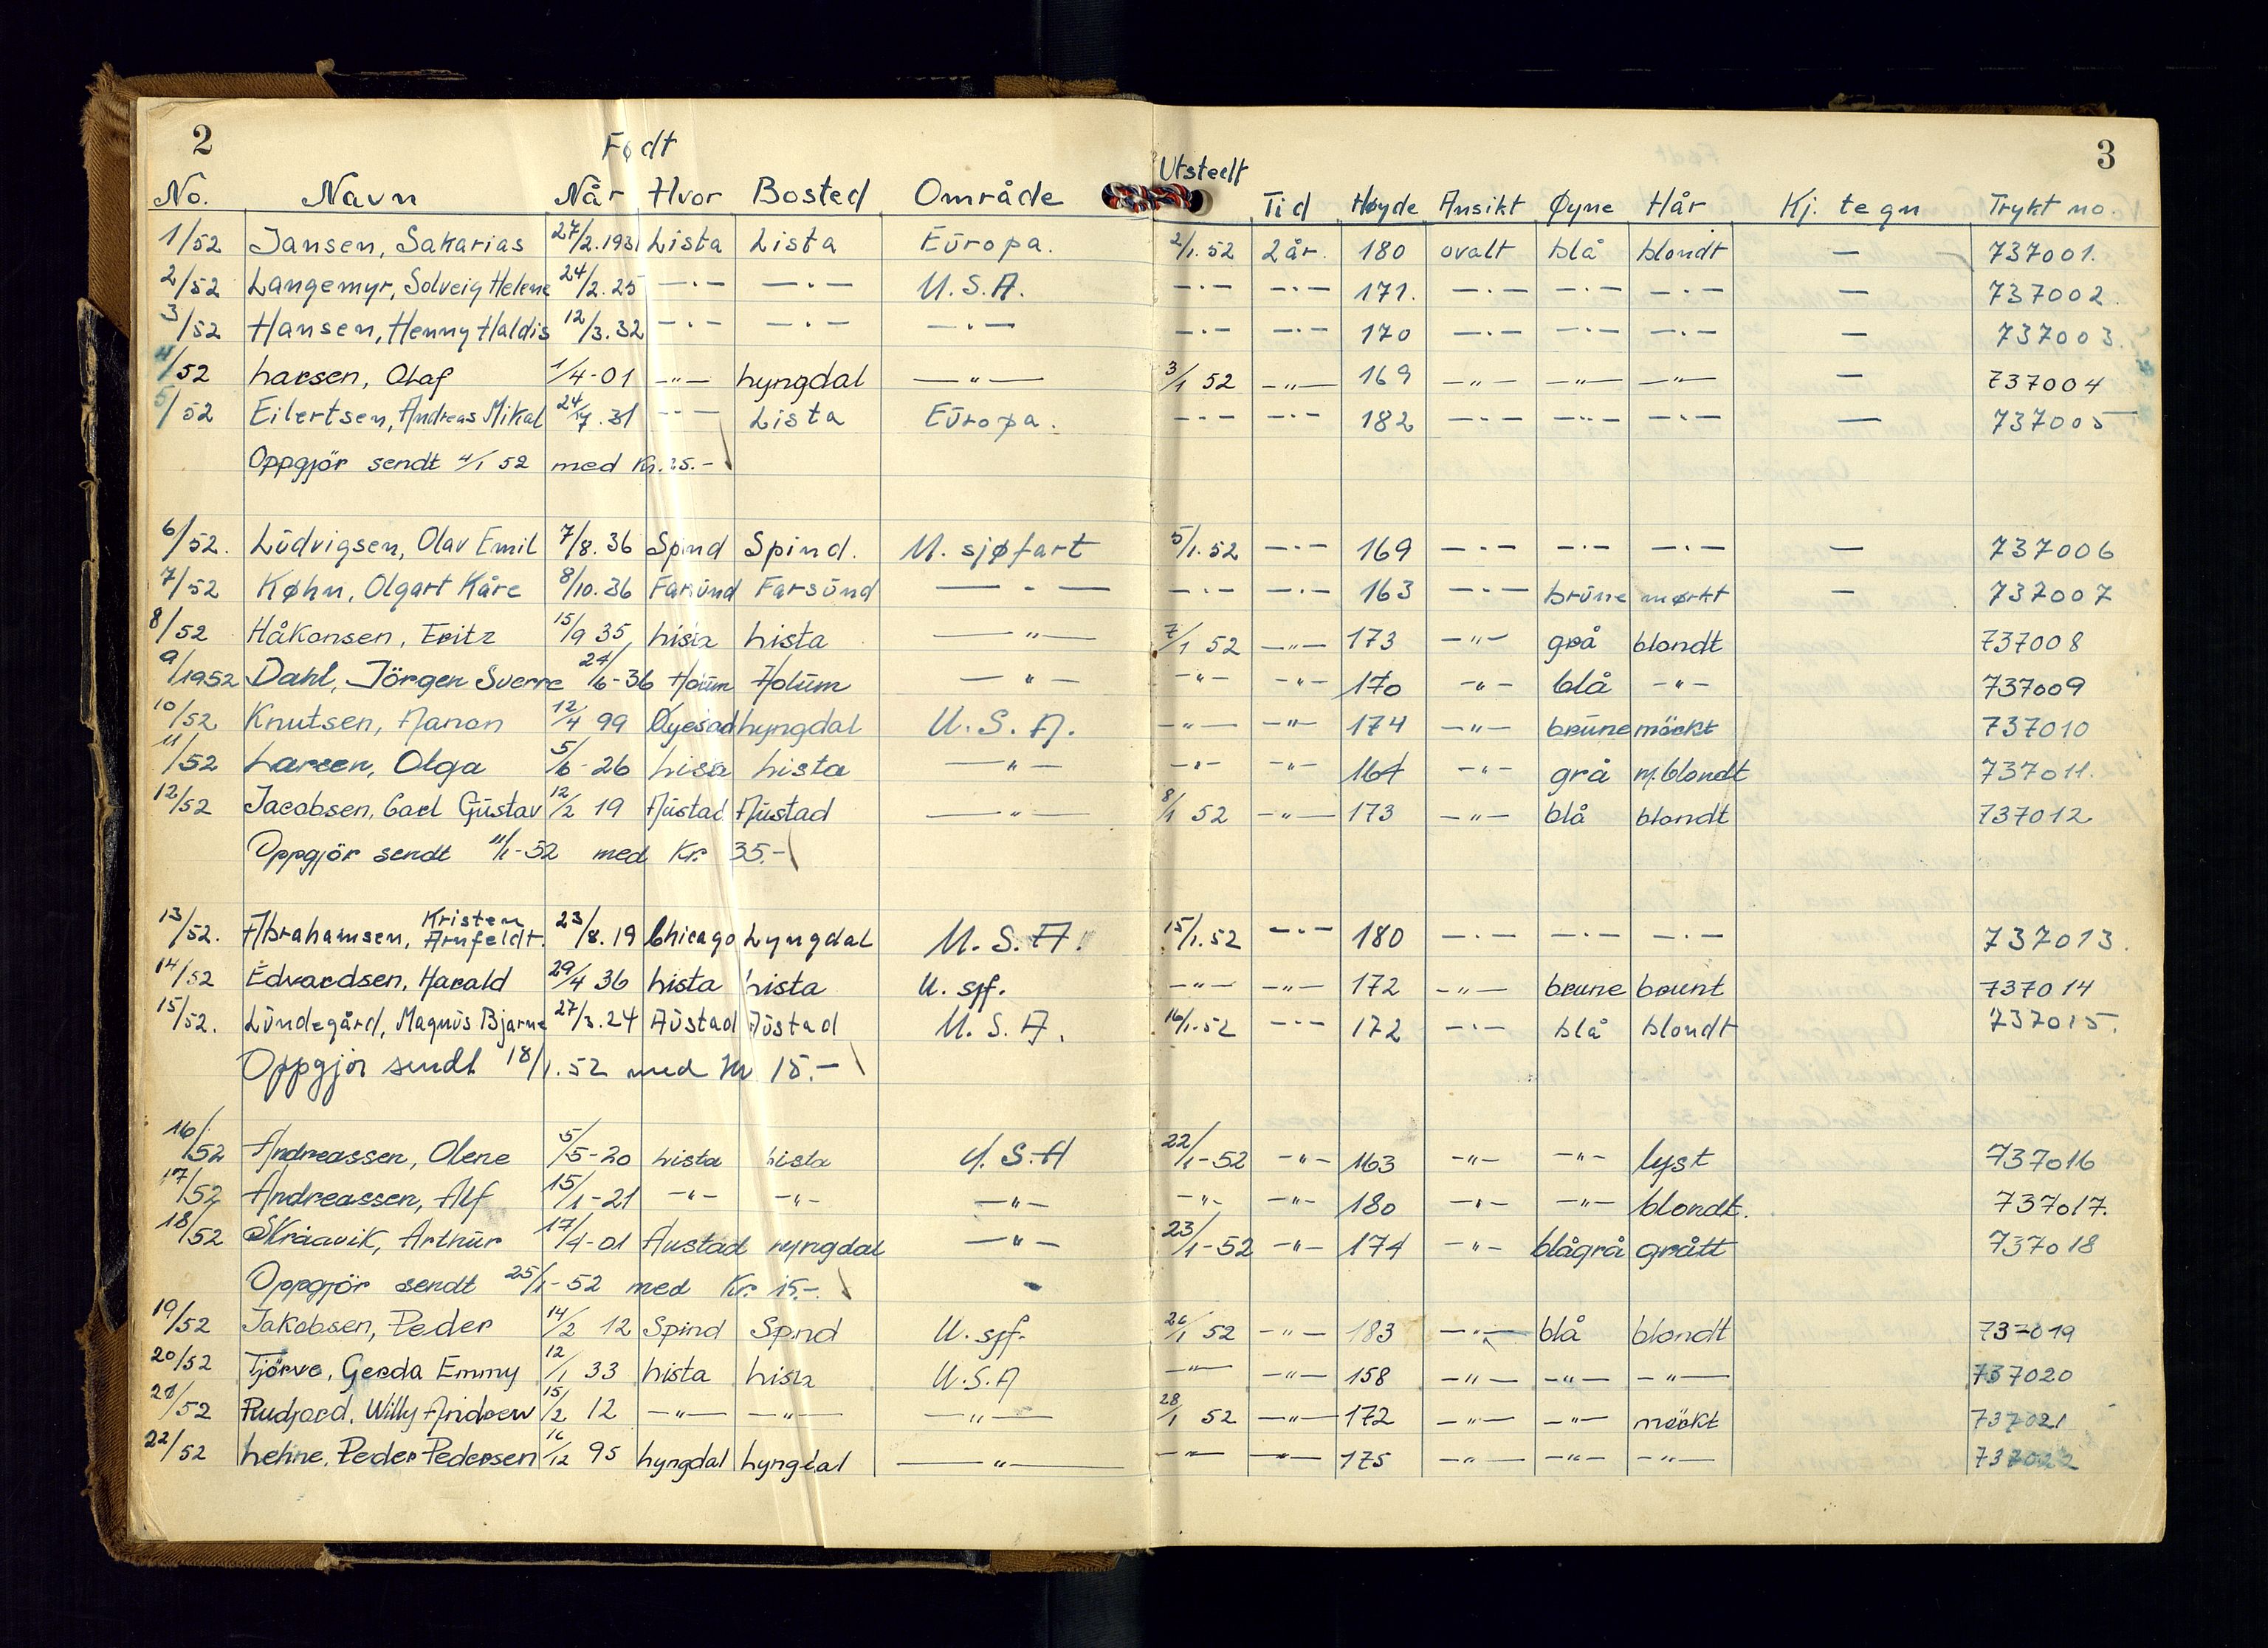 2
3
Født
Utstedt
No. Navn Når Hvor Bosted Område Tid Høyde Ansikt Øyne Hår Kj. tegn Trykt no.
1/52 Jansen, Sakarias 27/2.1931 Lista Lista Europa. 2/1.52 2 år. 180 ovalt blå blondt — 737001.
2/52 Langemyr, Solveig Helene 24/2.25 —·— —·— U.S.A. —·— —·— 171. —·— —·— —·— — 737002.
3/52 Hansen, Henny Haldis 12/3.32 —·— —·— —·— —·— —·— 170 —·— —·— —·— — 737003.
4/52 Larsen, Olaf 1/4-01 —"— Lyngdal —"— 3/1 52 —"— 169 —"— —"— —"— — 737004
5/52 Eilertsen, Andreas Mikal 24/7.31 —·— Lista Europa. —·— —·— 182 —·— —·— —·— — 737005
Oppgjör sendt 4/1 52 med Kr. 25.-
6/52. Ludvigsen, Olav Emil 7/8.36 Spind Spind. U. sjøfart 5/1.52 —·— 169 —·— —·— —·— — 737006
7/52 Køhn, Olgart Kåre 8/10.36 Farsund Farsund —·— —·— —·— 163 —·— brune mørkt — 737007
8/52 Håkonsen, Fritz 15/9 35 Lista Lista —"— 7/1 52 —"— 173 —"— grå blondt 737008
9/1952 Dahl, Jörgen Sverre 24/6-36 Holum Holum —"— —"— —"— 170 —"— blå —"— 737009
10/52 Knutsen, Aanon 12/4 99 Lyngdal U.S.A. —"— —"— 174 —"— brune mörkt 737010
11/52 Larsen, Olga 5/6-26 Lista Lista —"— —"— —"— 164 —"— grå m.blondt 737011.
12/52 Jacobsen, Carl Gustav 12/2 19 Austad Austad —"— 8/1 52 —"— 173 —"— blå blondt 737012
Oppgjör sendt 11/1-52 med Kr. 35.-
13/52. Abrahamsen, Kristen Arnfeldt. 23/8.19 Chicago Lyngdal U.S.A. 15/1.52 —·— 180 —·— —·— —·— 737013.
14/52 Edvardsen, Harald 29/4 36 Lista Lista U. sjf. —"— —"— 172 —"— brune brunt 737014
15/52. Lundegård, Magnus Bjarne 27/3.24 Austad Austad U.S.A. 16/1.52 —·— 172 —·— blå blondt 737015.
Oppgjör sendt 18/1.52 med kr 15.-
16/52 Andreassen, Olene 5/5-20 Lista Lista U.S.A 22/1-52 —"— 163 —"— —"— lyst 737016
17/52 Andreassen, Alf 15/1-21 —"— —"— —"— —"— —"— 180 —"— —"— blondt. 737017.
18/52 Skraavik, Arthur 17/4-01 Austad Lyngdal —"— 23/1-52 —"— 174 —"— blågrå grått 737018
Oppgjör sendt 25/1-52 med Kr. 15.-
19/52 Jakobsen, Peder 14/2 12 Spind Spind U. sjf. 26/1 52 —"— 183 —"— blå blondt 737019
20/52 Tjörve, Gerda Emmy 12/1 33 Lista Lista U.S.A —"— —"— 158 —"— —"— —"— 737020
21/52 Rudjord, Willy Andrew 15/2 12 —"— —"— —"— 28/1 52 —"— 172 —"— —"— mörkt 737021
22/52 Lehne, Peder Pedersen 16/12 95 Lyngdal Lyngdal —"— —"— —"— 175 —"— —"— —"— 737022